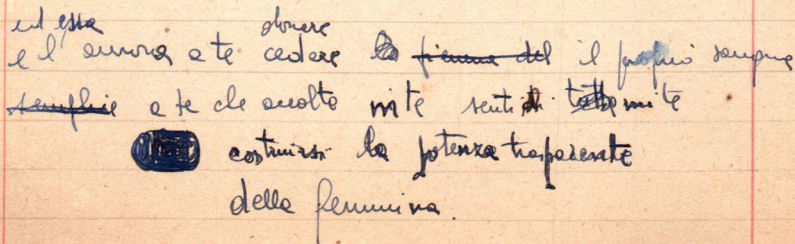 ed essa donare
e l'aurora a te cedere la fiamma del il proprio sangue
a te che accolta nte senti di mite
costruirsi la potenza trasparente
della femmina.